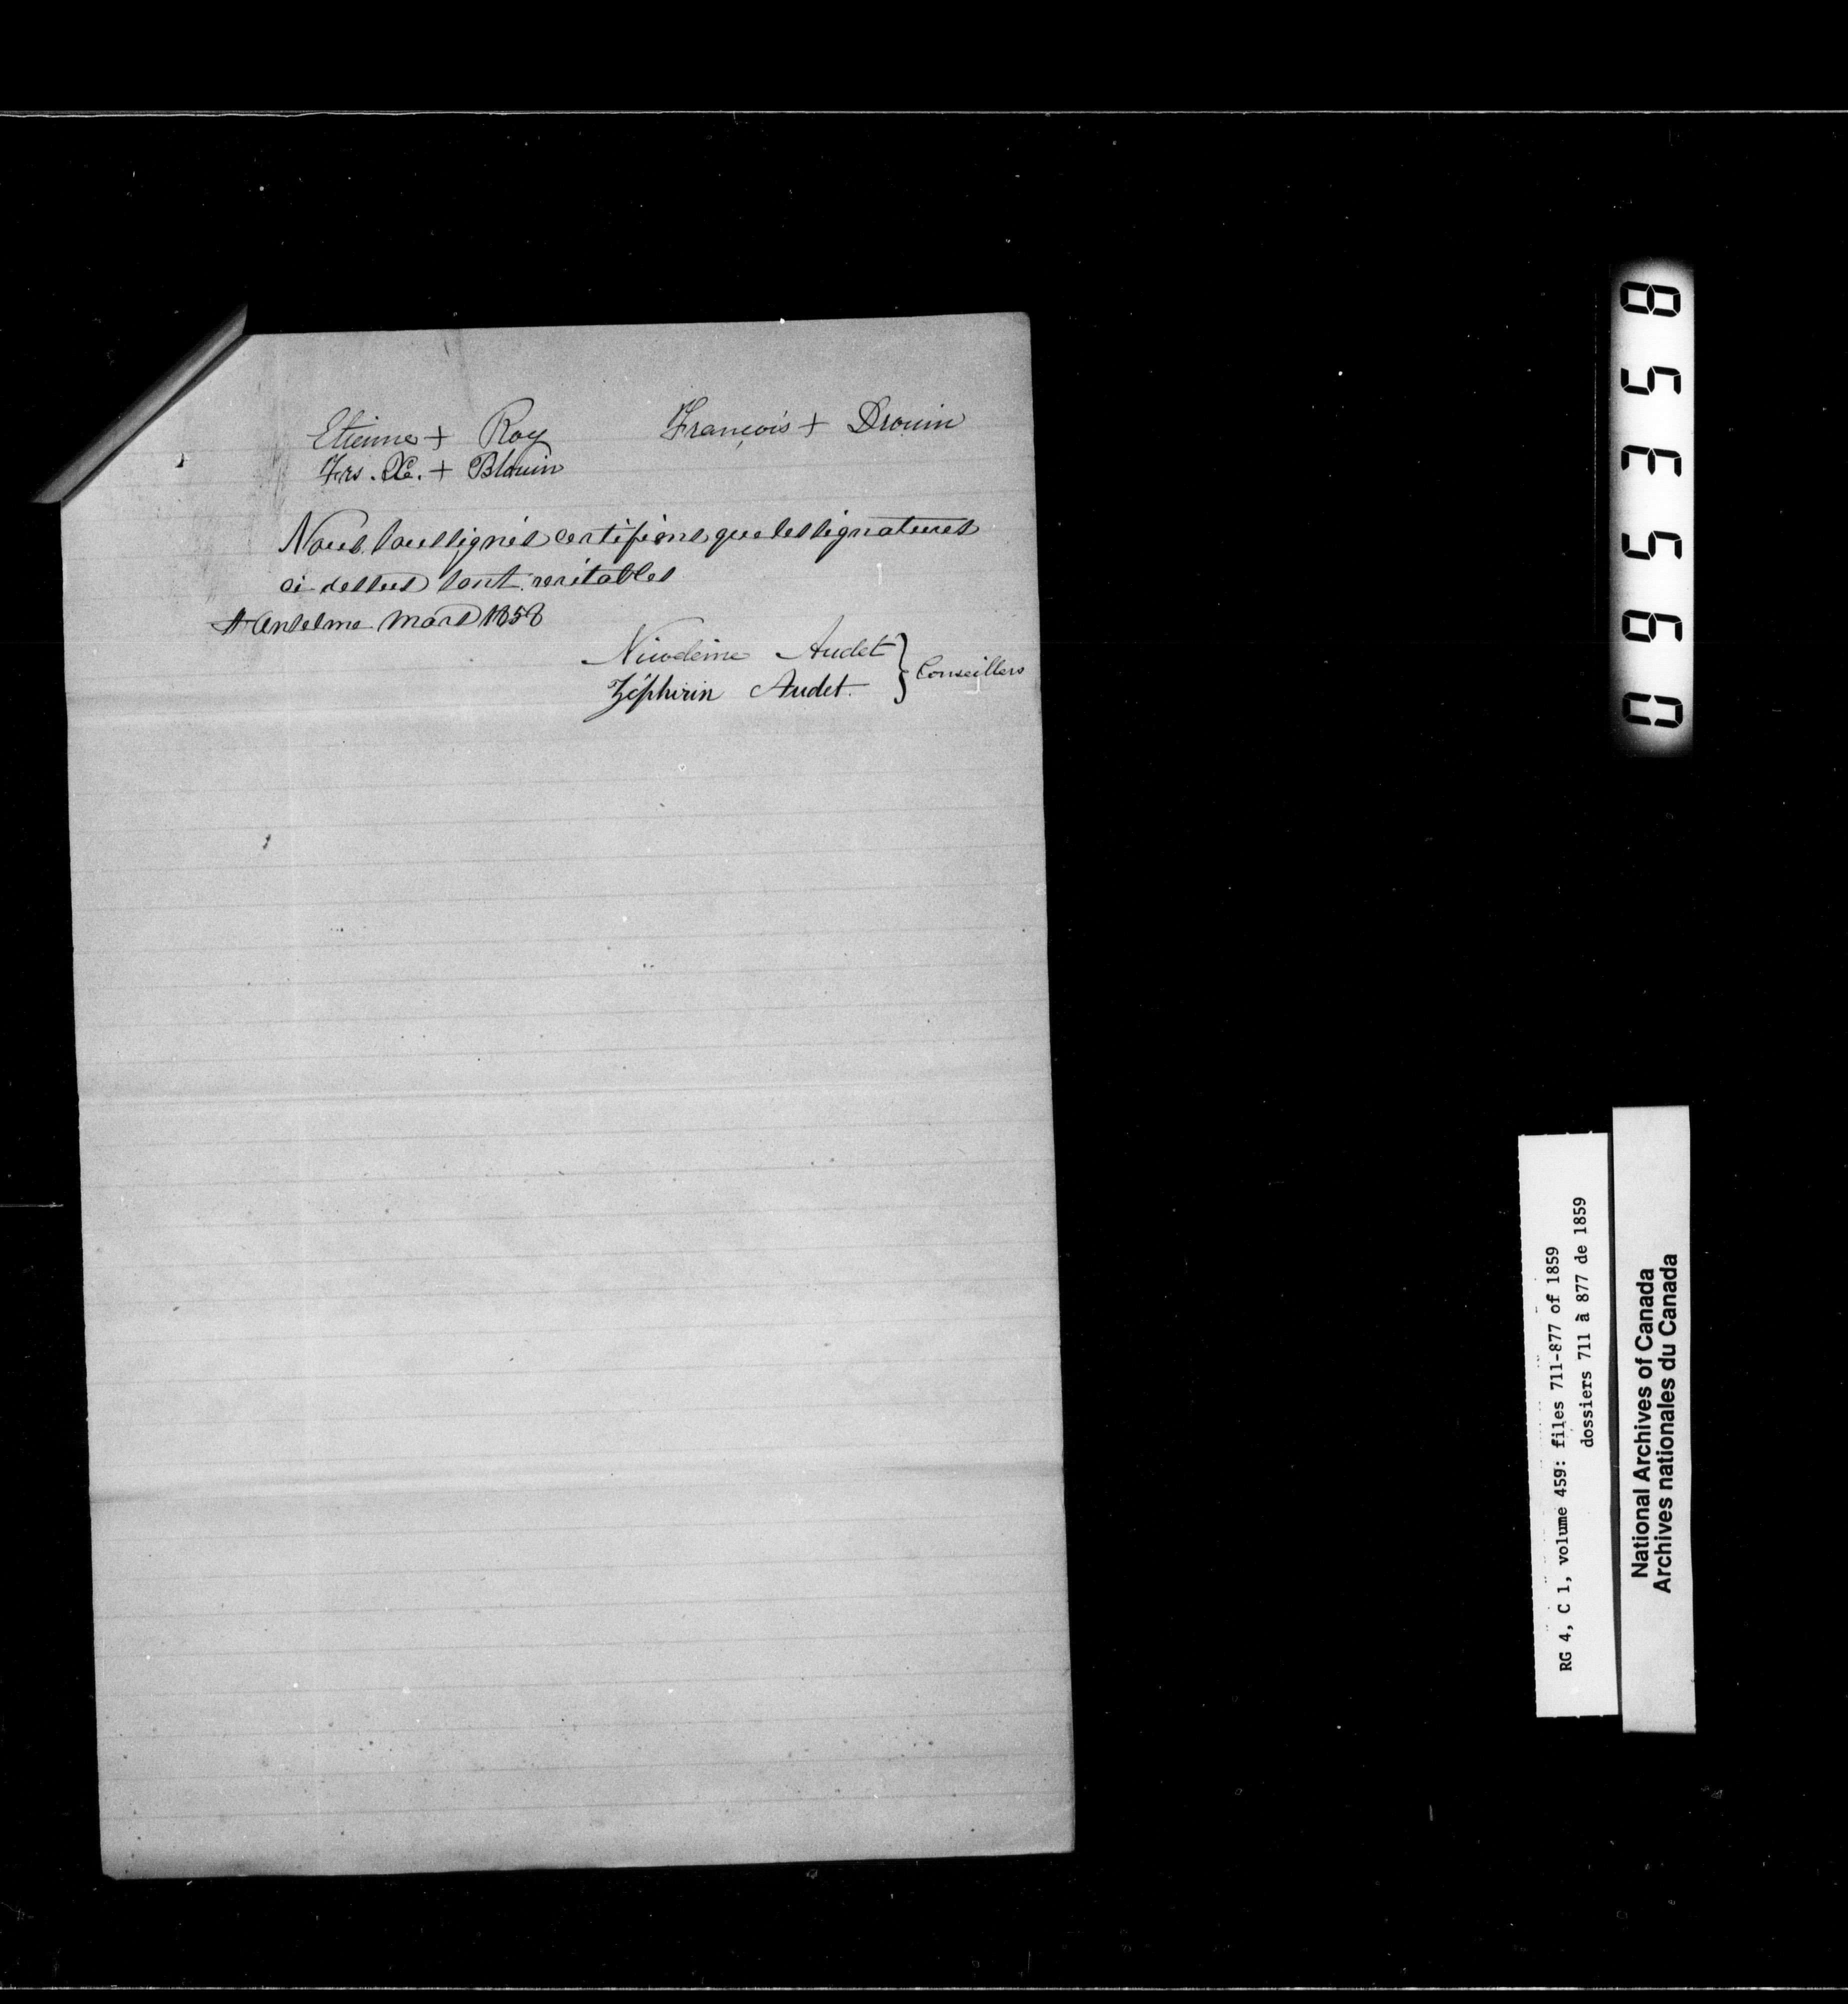 Etienne + Roy François + Drouin
Frs. X. + Blouin
Nous Soussignés certifions que les signatures
ci dessus sont veritables
St Anselme Mars 1858
Nicodème Audet } Conseillers
Zéphirin Audet
095358
RG 4, C 1, volume 459: files 711-877 of 1859
dossiers 711 à 877 de 1859
National Archives of Canada
Archives nationales du Canada